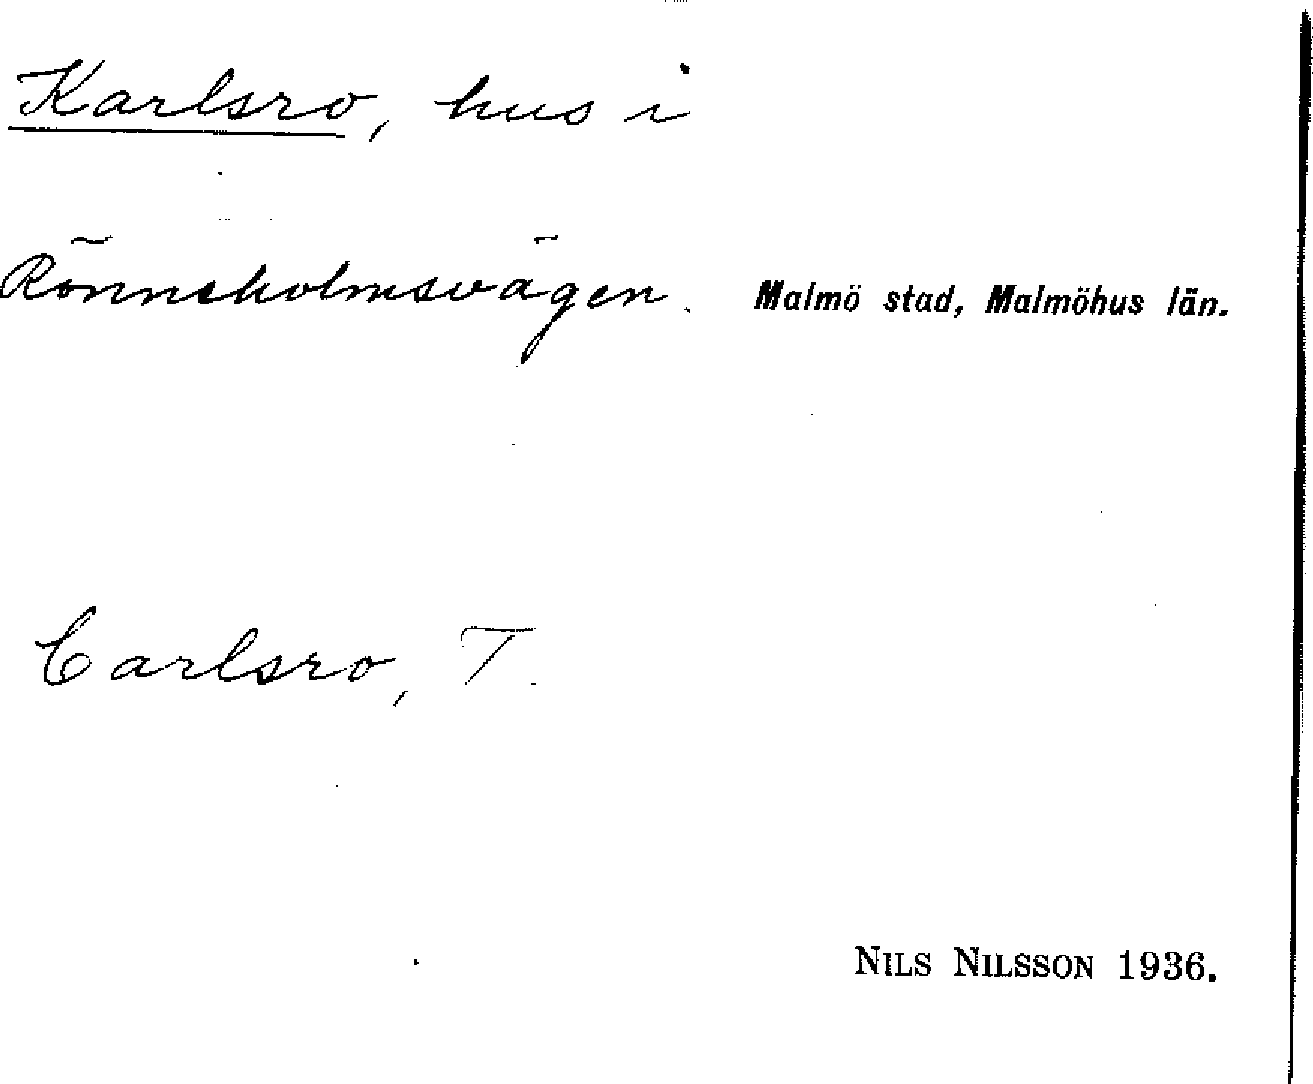 Karlsro, hus i
Rönneholmsvägen. Malmö stad, Malmöhus län.
Carlsro, T.
NILS NILSSON 1936.